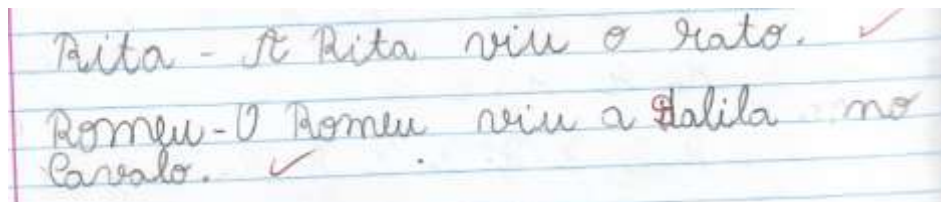 Rita - A Rita viu o rato.
Romeu - O Romeu viu a Dalila no
Cavalo.